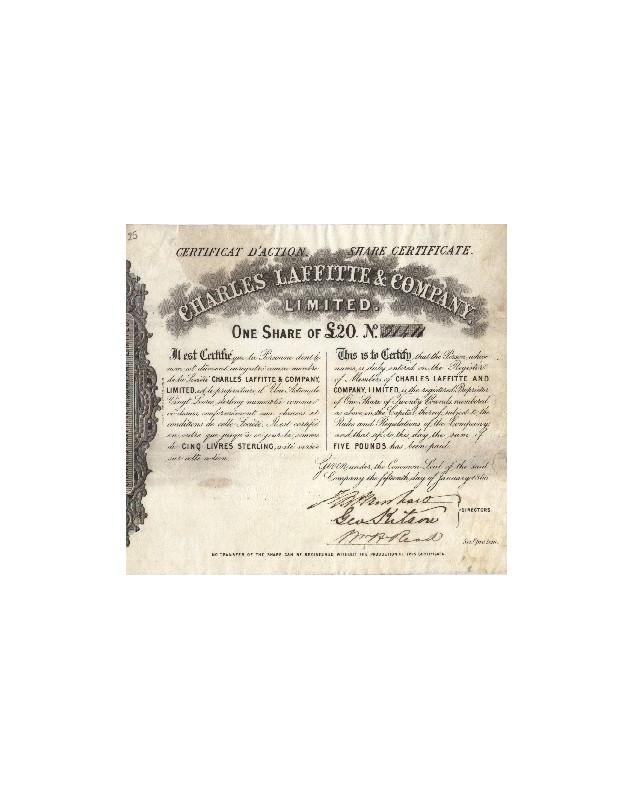 25
CERTIFICAT D'ACTION. SHARE CERTIFICATE.
CHARLES LAFFITTE & COMPANY,
LIMITED.
ONE SHARE OF £20. No.
Il est Certifié que la Personne dont le
nom est dûment enregistré comme membre
de la Société CHARLES LAFFITTE & COMPANY,
LIMITED, est le propriétaire d'Une Action de
Vingt Livres Sterling numérotée comme
ci-dessus, conformément aux clauses et
conditions de cette Société. Il est certifié
en outre que jusqu'à ce jour la somme
de CINQ LIVRES STERLING, a été versée
sur cette action.
This is to Certify, that the Person whose
name, is duly entered on the Register
of Members of CHARLES LAFFITTE AND
COMPANY, LIMITED, is the registered Proprietor
of One Share of Twenty Pounds, numbered
as above, in the Capital thereof, subject to the
Rules and Regulations of the Company;
and that up to this day, the sum of
FIVE POUNDS has been paid.
Given, under the Common Seal of the said
Company the fifteenth day of January 1866.
Geo. Kitson
Wm. H. Read
DIRECTORS.
Sec. pro tem.
NO TRANSFER OF THE SHARE CAN BE REGISTERED WITHOUT THE PRODUCTION OF THIS CERTIFICATE.